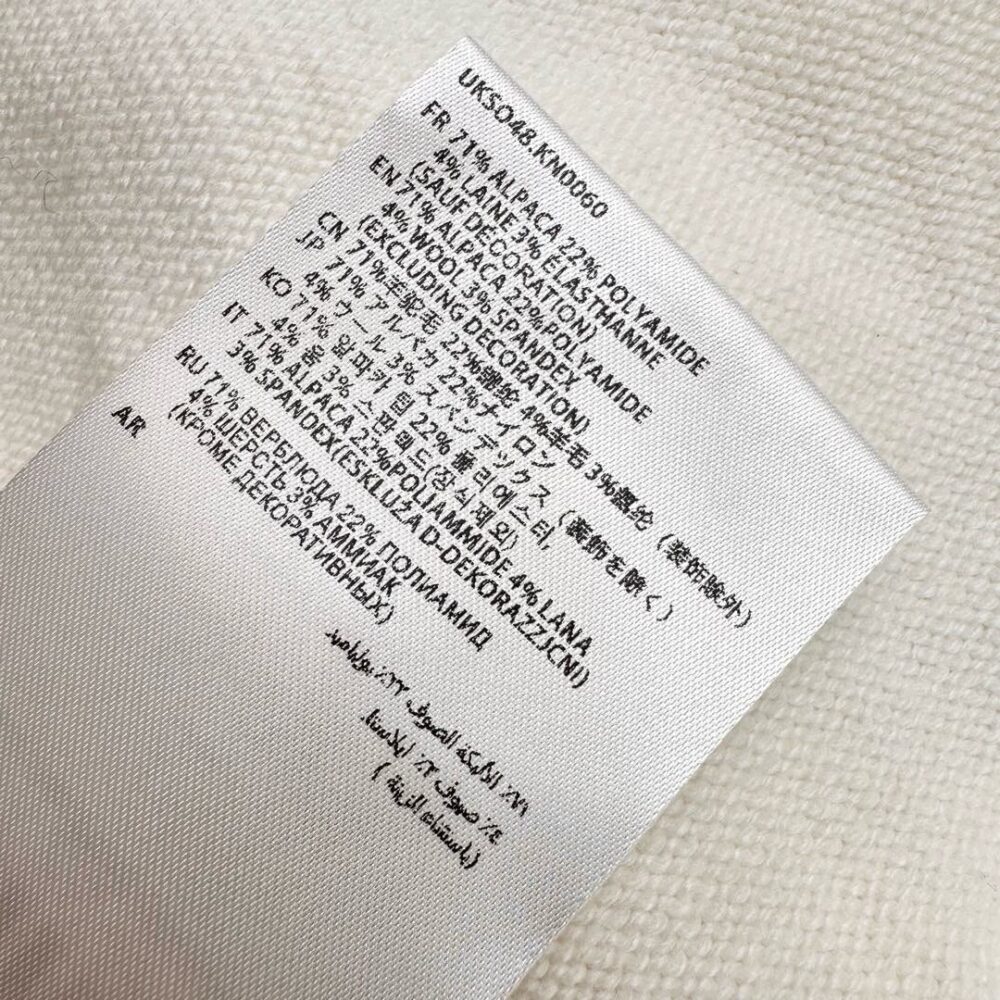 UKSO48.KN0060
FR 71% ALPACA 22% POLYAMIDE
4% LAINE 3% ELASTHANNE
(SAUF DÉCORATION)
EN 71% ALPACA 22% POLYAMIDE
4% WOOL 3% SPANDEX
(EXCLUDING DECORATION)
CN 71%羊驼毛 22%锦纶 4%羊毛 3%氨纶（装饰除外）
JP 71% アルパカ 22%ナイロン
4% ウール 3% スパンデックス（装飾を除く）
KO 71% 알파카 털 22% 폴리에스터,
4% 울 3% 스판덱스(장식제외)
IT 71% ALPACA 22%POLIAMMIDE 4% LANA
3% SPANDEX(ESKLUŻA D-DEKORAZZJCNI)
RU 71% ВЕРБЛЮДА 22% ПОЛИАМИД
4% ШЕРСТЬ 3% АММИАК
(КРОМЕ ДЕКОРАТИВНЫХ)
AR
٧١٪ الألبكة الصوف ٢٢٪ بوليامد
٤٪ صوف ٣٪ ايلاستا
(باستثناء الزينة)